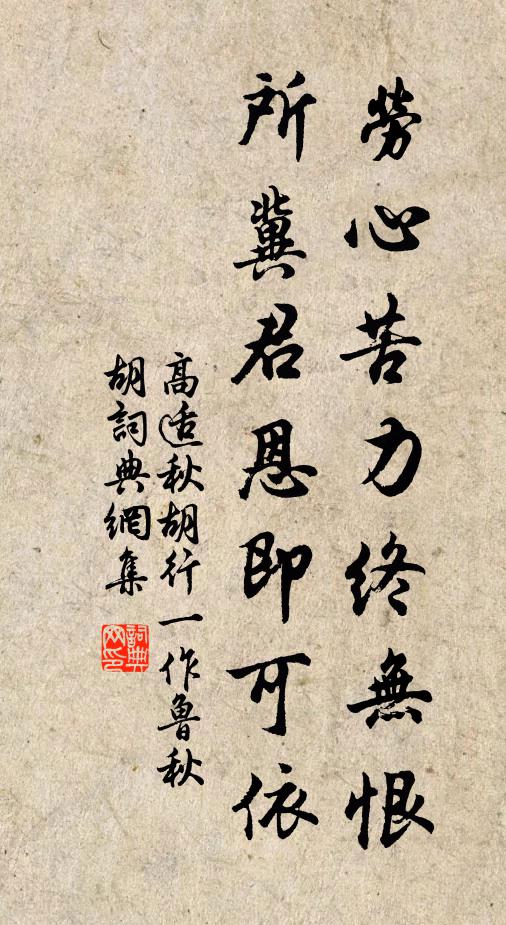 勞心苦力終無恨
所冀君恩即可依
高适秋胡行一作魯秋
胡詞典網集
詞典網印